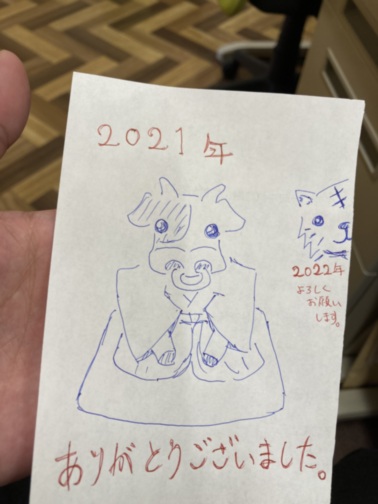 2021年
2022年
よろしく
お願い
します。
ありがとうございました。